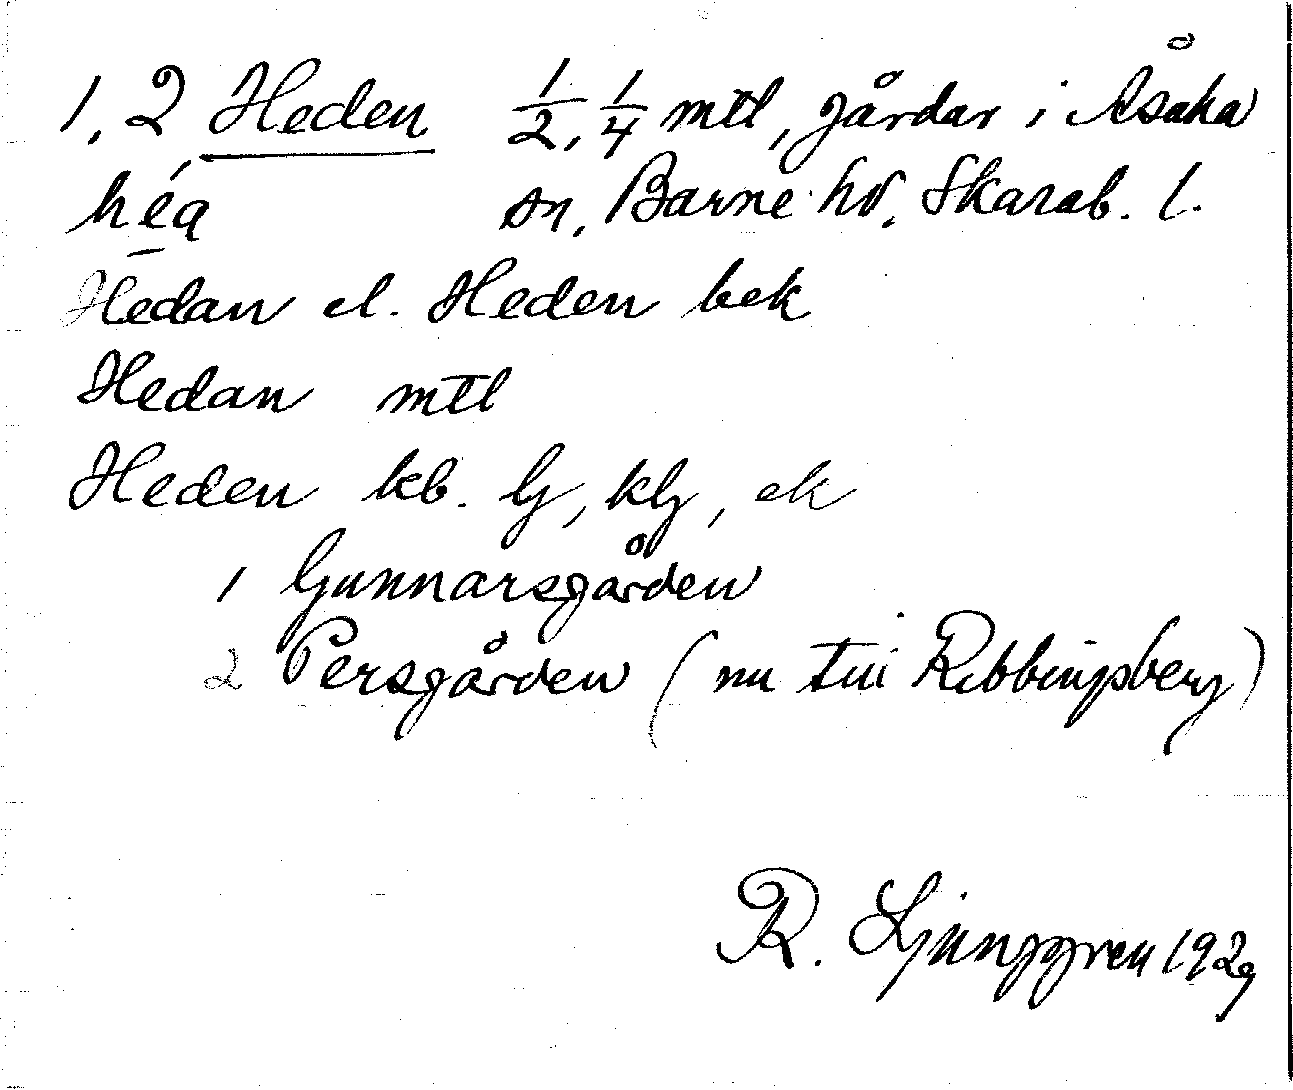 1, 2 Heden 1/2, 1/4 mtl, gårdar i Åsaka
héa sn, Barne hd. Skarab. l.
Hedan el. Heden bek
Hedan mtl
Heden kb. G, kG, ek
1 Gunnarsgården
2 Persgården (nu Ribbingsberg)
R. Ljunggren 1929